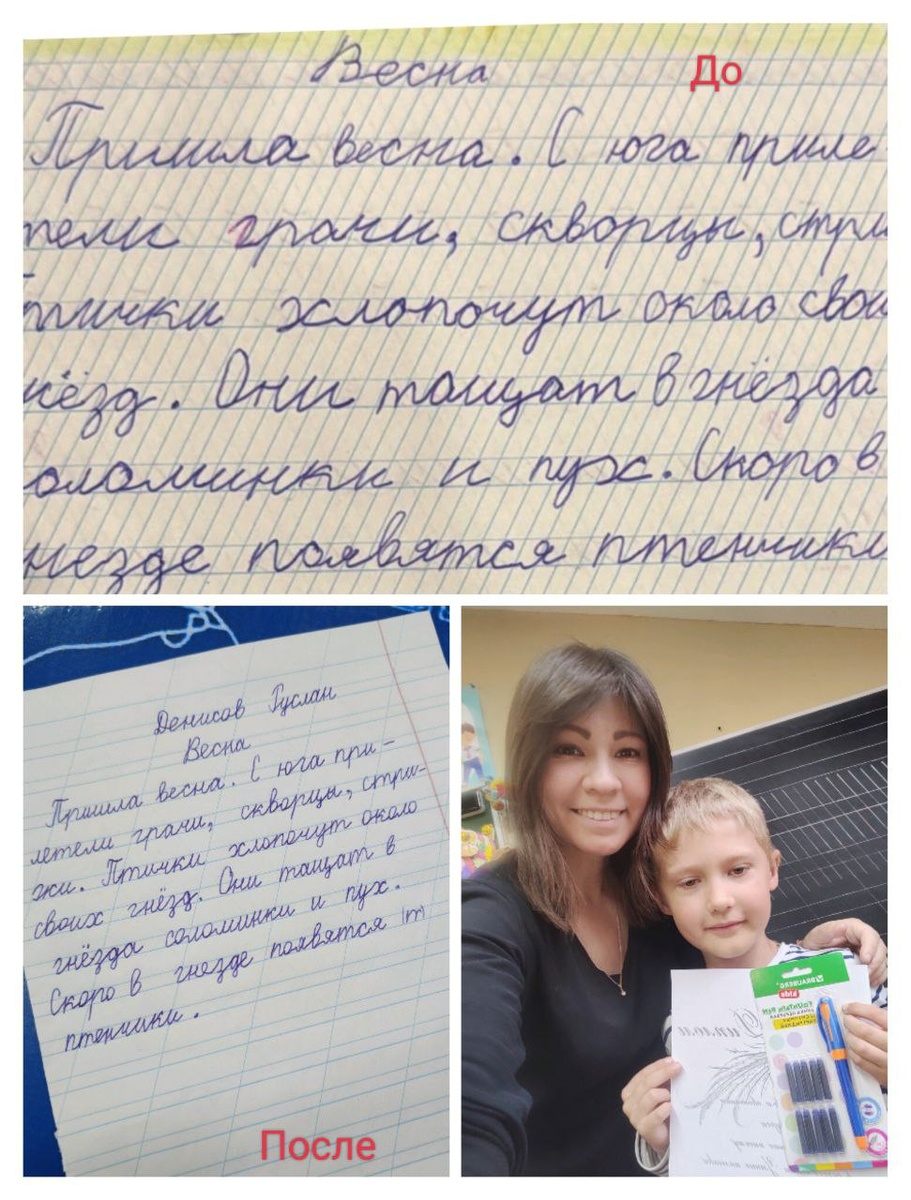 Весна
До
Пришла весна. С юга приле
тели грачи, скворцы, стри
тички хлопочут около свои
нёзд. Они тащат в гнёзда
оломинки и пух. Скоро в
незде появятся птенчики
Денисов Руслан
Весна
Пришла весна. С юга при-
летели грачи, скворцы, стри-
жи. Птички хлопочут около
своих гнёзд. Они тащат в
гнёзда соломинки и пух.
Скоро в гнезде появятся (т)
птенчики.
После
BRAUBERG
kids
FOUNTAIN PEN
Диплом